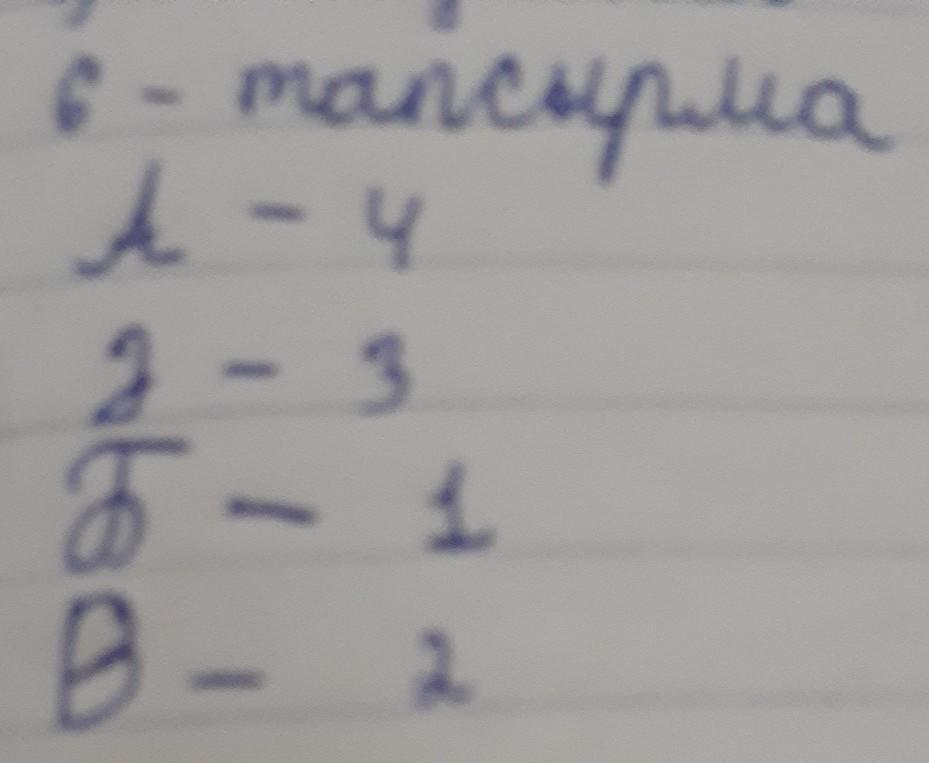 6 - тапсырма
А - 4
Ә - 3
Б - 1
В - 2